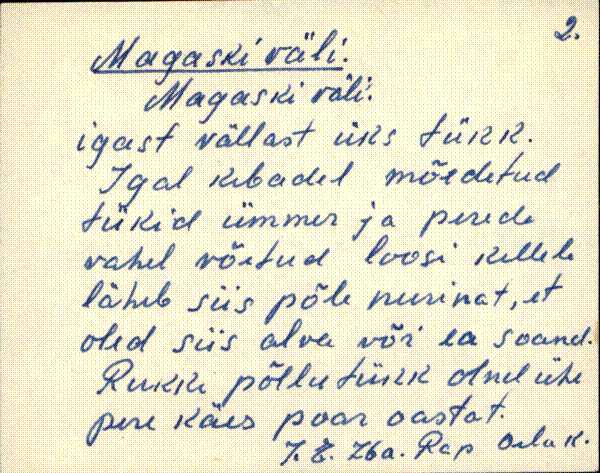 2.
Magaski väli.
Magaski väli.
igast vällast üks tükk.
Igal kebadel mõedetud
tükid ümmer ja perede
vahel võetud loosi kellele
läheb siis põle nurinat, et
oled siis alva või ea soand.
Rukki põllu tükk olnd ühe
pere käes poar oastat.
Rap